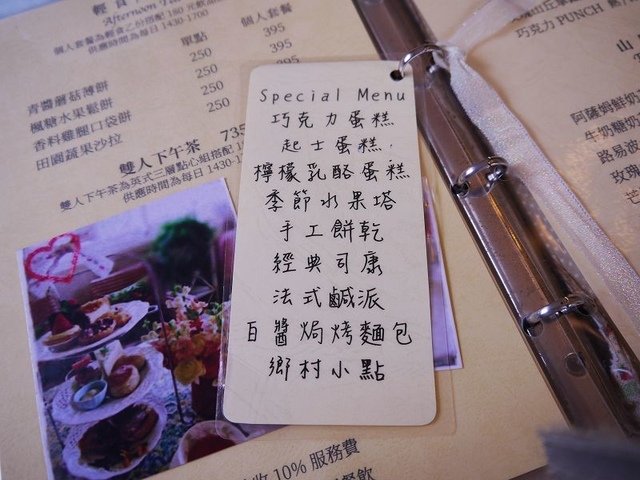 Afternoon Tea
個人套餐為輕食乙份搭配180元飲品
供應時間為每日1430-1700
單點
個人套餐
青醬蘑菇薄餅 250 395
楓糖水果鬆餅 250 395
香料雞腿口袋餅 250
田園蔬果沙拉 250
雙人下午茶 735
雙人下午茶為英式三層點心組搭配
供應時間為每日1430-1
Special Menu
巧克力蛋糕
起士蛋糕
檸檬乳酪蛋糕
季節水果塔
手工餅乾
經典司康
法式鹹派
白醬焗烤麵包
鄉村小點
10% 服務費
巧克力 PUNCH
山
阿薩姆鮮奶
牛奶糖奶
路易波
玫瑰